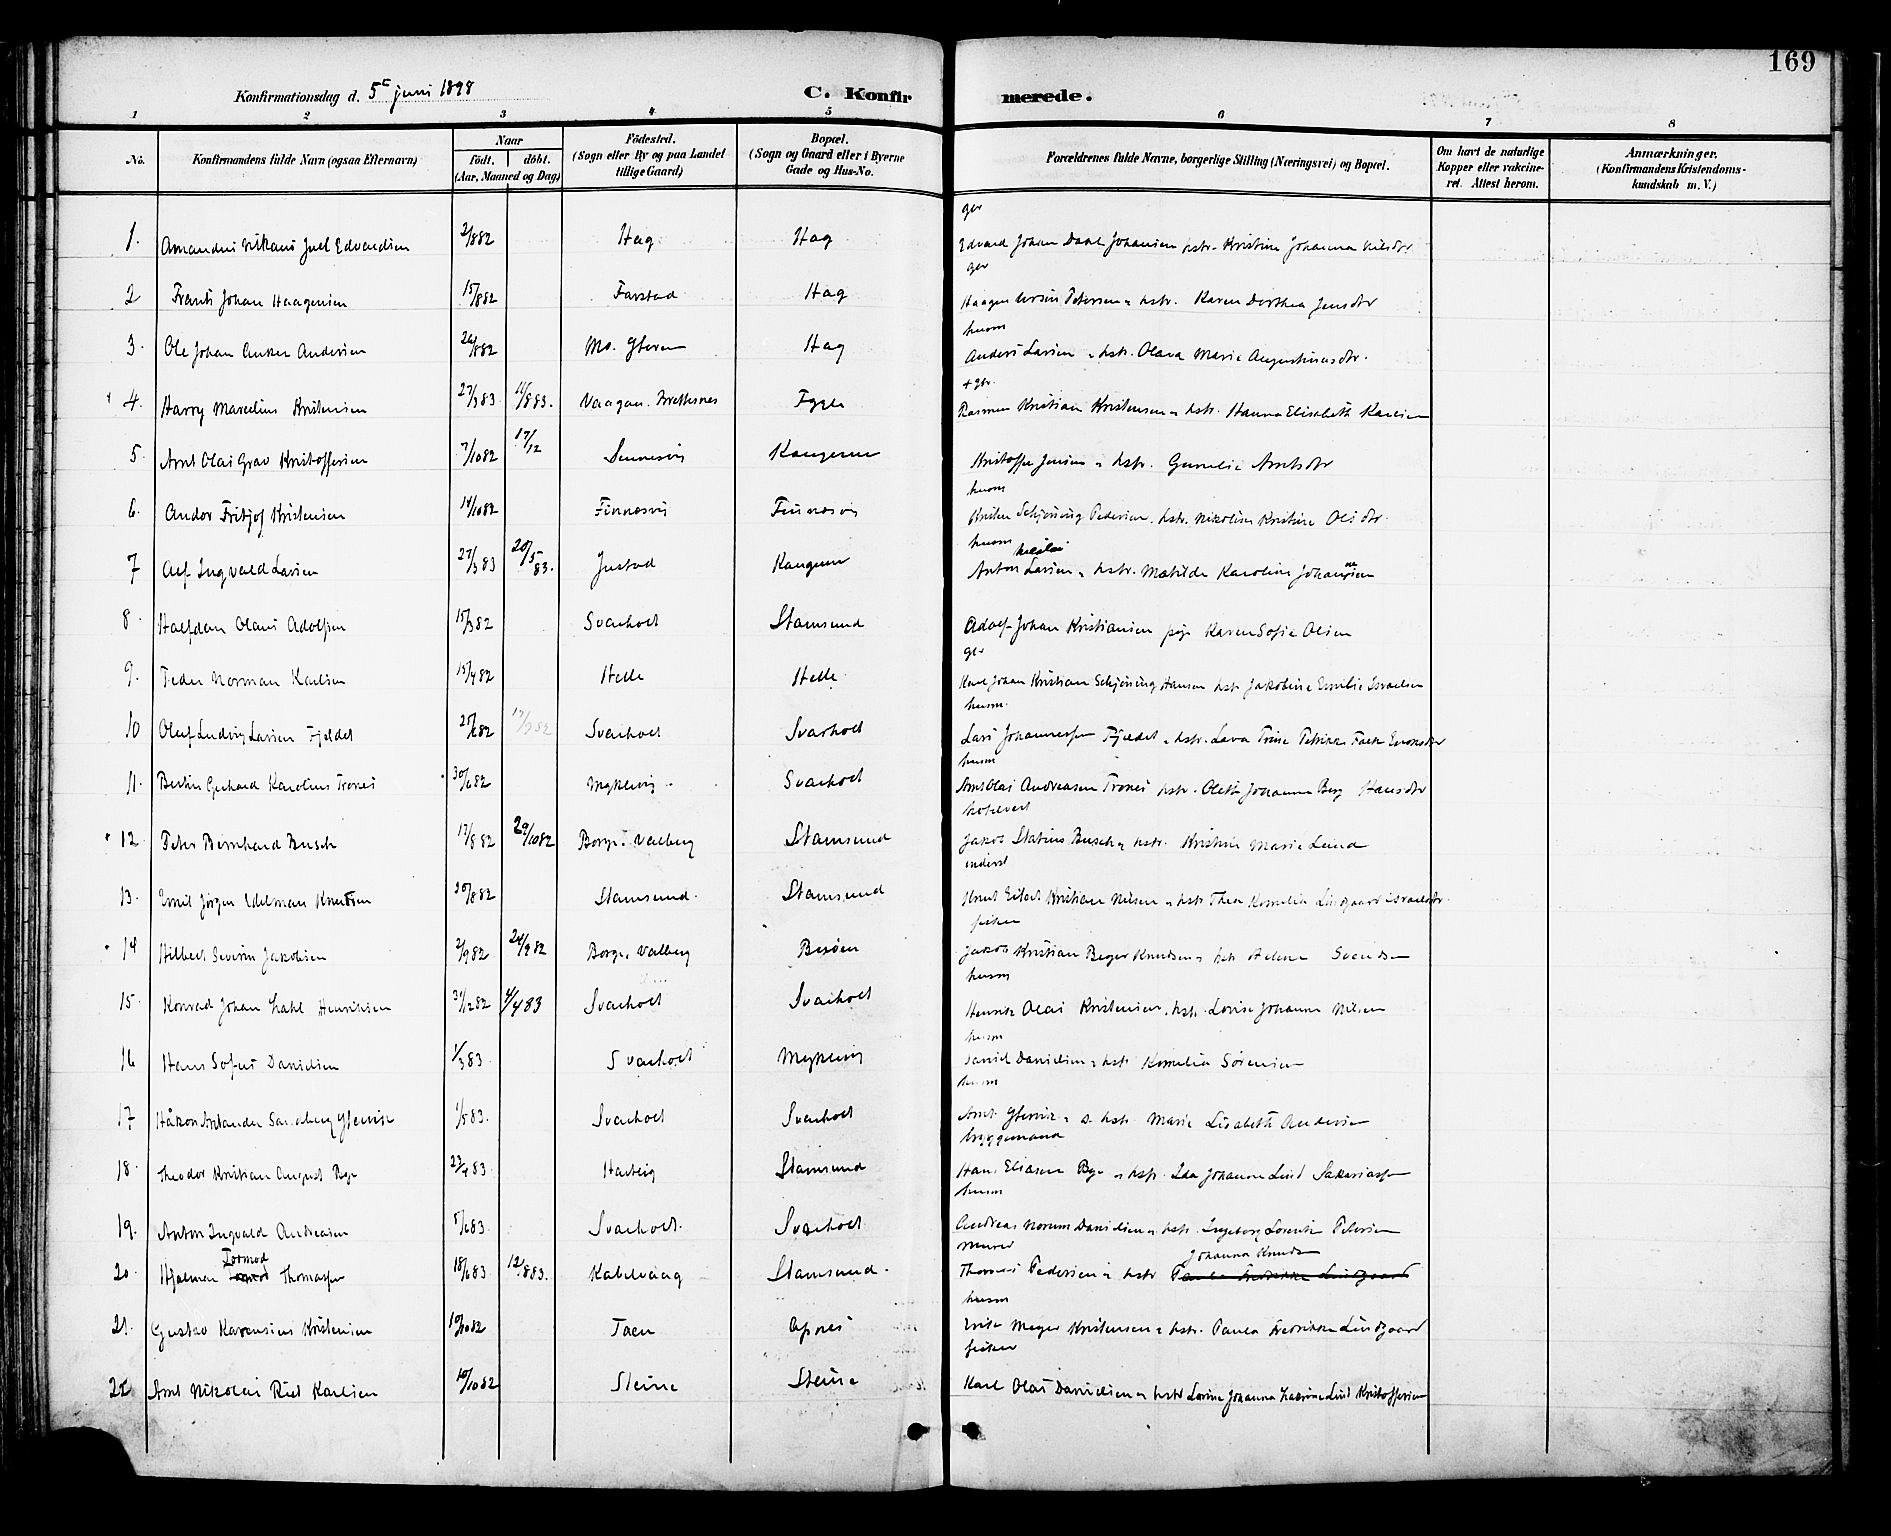 169
Konfirmationsdag d. 5te juni 1898
C. Konfirmerede.
1 2 3 4 5 6 7 8
No. Konfirmandens fulde Navn (ogsaa Efternavn) Naar födt. döbt. (Aar, Maaned og Dag) Födested. (Sogn eller By og paa Landet tillige Gaard) Bopæl. (Sogn og Gaard eller i Byerne Gade og Hus-No. Forældrenes fulde Navne, borgerlige Stilling (Næringsvei) og Bopæl. Om havt de naturlige Kopper eller vakcineret. Attest herom. Anmærkninger. (Konfirmandens Kristendomskundskab m. V.)
gbr
1. Juel Edvardsen 2/8 82 Hag Hag Edvard Johan Dahl Johansen hstr. Kristine Johanna Nilsdtr.
gbr
2 Frants Johan Haagensen 15/8 82 Farstad Hag Haagen Petersen hstr. Karen Dorthea Jensdtr
husm
3. Ole Johan Anker Andersen 26/8 82 Hag Anders Larsen hstr. Olava Marie Augustinusdtr.
+ gbr.
4. Harry Marelius Kristensen 27/3 83 11/8 83. Vaagan. Brettesnes Fygle Rasmus Kristian Kristensen hstr. Hanna Elisabeth Karlsen
5. Arnt Olai Grav Kristoffersen 7/10 82 17/12 Sennesvig Kangerne Kristoffer Jensen hstr. Gurelie Arntsdtr
husm
6. Andor Fritjof Kristensen 14/10 82 Finnesvig Finnesvig Schjöning Pedersen hstr. Nikoline Kristine Olsdtr.
husm
7 Alf Ingvald Larsen 27/3 83 20/5 83. Justad Kangern Anton Nikolai Larsen hstr. Matilde Karoline Johannesen
8. Halfdan Olaus Adolfsen 15/3 82 Svarholt Stamsund Adolf Johan Kristiansen pige Karen Sofie Olsen
gbr
9. Peder Norman Karlsen 15/4 82 Helle Helle Karl Johan Kristian Schjöning Hansen hstr Jakobine Emilie Israelsen
husm.
10 Oluf Ludvig Larsen Fjeldet 25/6 82 Svarholt Svarholt Lars Johannessen Fjeldet hstr. Lava Trine Petrikke Falk
husm
11. Gerhard Karolius Trones 30/6 82 Myklevig Svarholt Arnt Olai Andreasen Trones hstr. Oleth Johanna Berg Hansdtr
hotelvert
12. Peter Bernhard Busch 17/8 82 29/10 82 Borge. Valberg Stamsund Jakob Statius Busch hstr. Kristine Marie Lund
inderst
13. Emil Jörgen Edelman Knutsen 30/8 82 Stamsund. Stamsund Knut Eilert Kristian Nilsen hstr Thea Kornelia Lindgaard Israelsdtr.
fisker
14 Hilbert Severin Jakobsen 2/9 82 24/9 82 Borge, Valberg Jakob Kristian Beyer Knudsen hstr Helene Svendsen
husm
15. Konrad Johan Henriksen 31/12 82 4/4 83 Svarholt Svarholt Henrik Olai Kristensen, hstr. Lovise Johanna Nilsen
husm
16 Hans Sofus Danielsen 1/3 83 Svarholt Myklevig Daniel Danielsen hstr Kornelia Sörensen
husm
17 Håkon 1/5 83. Svarholt Svarholt Arnt hstr Marie Lisabeth Andersen
bryggemand
18. Theodor Kristian August Bye 23/4 83. Stamsund Hans Eliasen Bye hstr. Ida Johanna Lind Sakariassen
husm
19. Anton Ingvald Andreasen 5/6 83. Svarholt. Svarholt Andreas Norum Danielsen hstr. Ingeborg Lorentse Petersen
Murer Johanna Knudsen
20. Hjalmar Tormod Thomassen 18/6 83 12/8 83. Kabelvaag Stamsund. Thomas Pedersen hstr Paula Fredrikke Lindgaard
husm
21. Gustav Kristensen 10/10 82 Taen Meyer Kristensen hstr. Paula Fredrikke Lindgaard
fisker
22 Arnt Nikolai Karlsen 10/10 82 Steine Steine Karl Olai Danielsen hstr Lovise Johanna Lind Kristoffersen